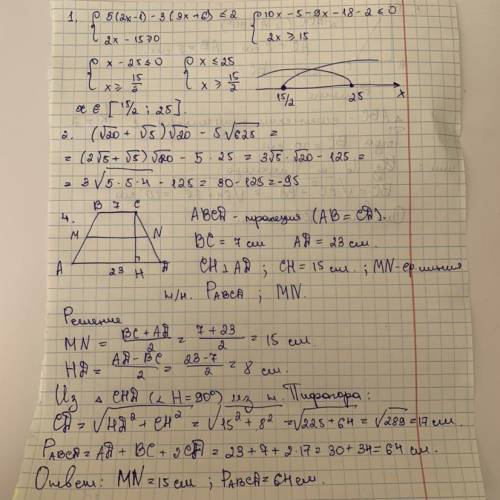 1. { 5(2x-1) - 3(3x+6) ≤ 2   { 10x - 5 - 9x - 18 - 2 ≤ 0
2x - 15 ≥ 0   2x ≥ 15
{ x - 25 ≤ 0   { x ≤ 25
x ≥ 15/2   x ≥ 15/2
15/2   25   x
x ∈ [15/2 ; 25].
2. (√20 + √5)√20 - 5√625 =
= (2√5 + √5)√20 - 5 · 25 = 3√5 · √20 - 125 =
= 3√5·5·4 - 125 = 30 - 125 = -95
4. B 7 C
M N
A 23 H D
ABCD - трапеция (AB = CD).
BC = 7 см   AD = 23 см.
CH ⊥ AD ; CH = 15 см. ; MN - ср. линия
Н/н. PABCD ; MN.
Решение
MN = (BC + AD)/2 = (7 + 23)/2 = 15 см.
HD = (AD - BC)/2 = (23 - 7)/2 = 8 см.
Из △ CHD (∠ H = 90°) из т. Пифагора:
CD = √HD² + CH² = √15² + 8² = √225 + 64 = √289 = 17 см.
PABCD = AD + BC + 2CD = 23 + 7 + 2·17 = 30 + 34 = 64 см.
Ответ: MN = 15 см ; PABCD = 64 см.